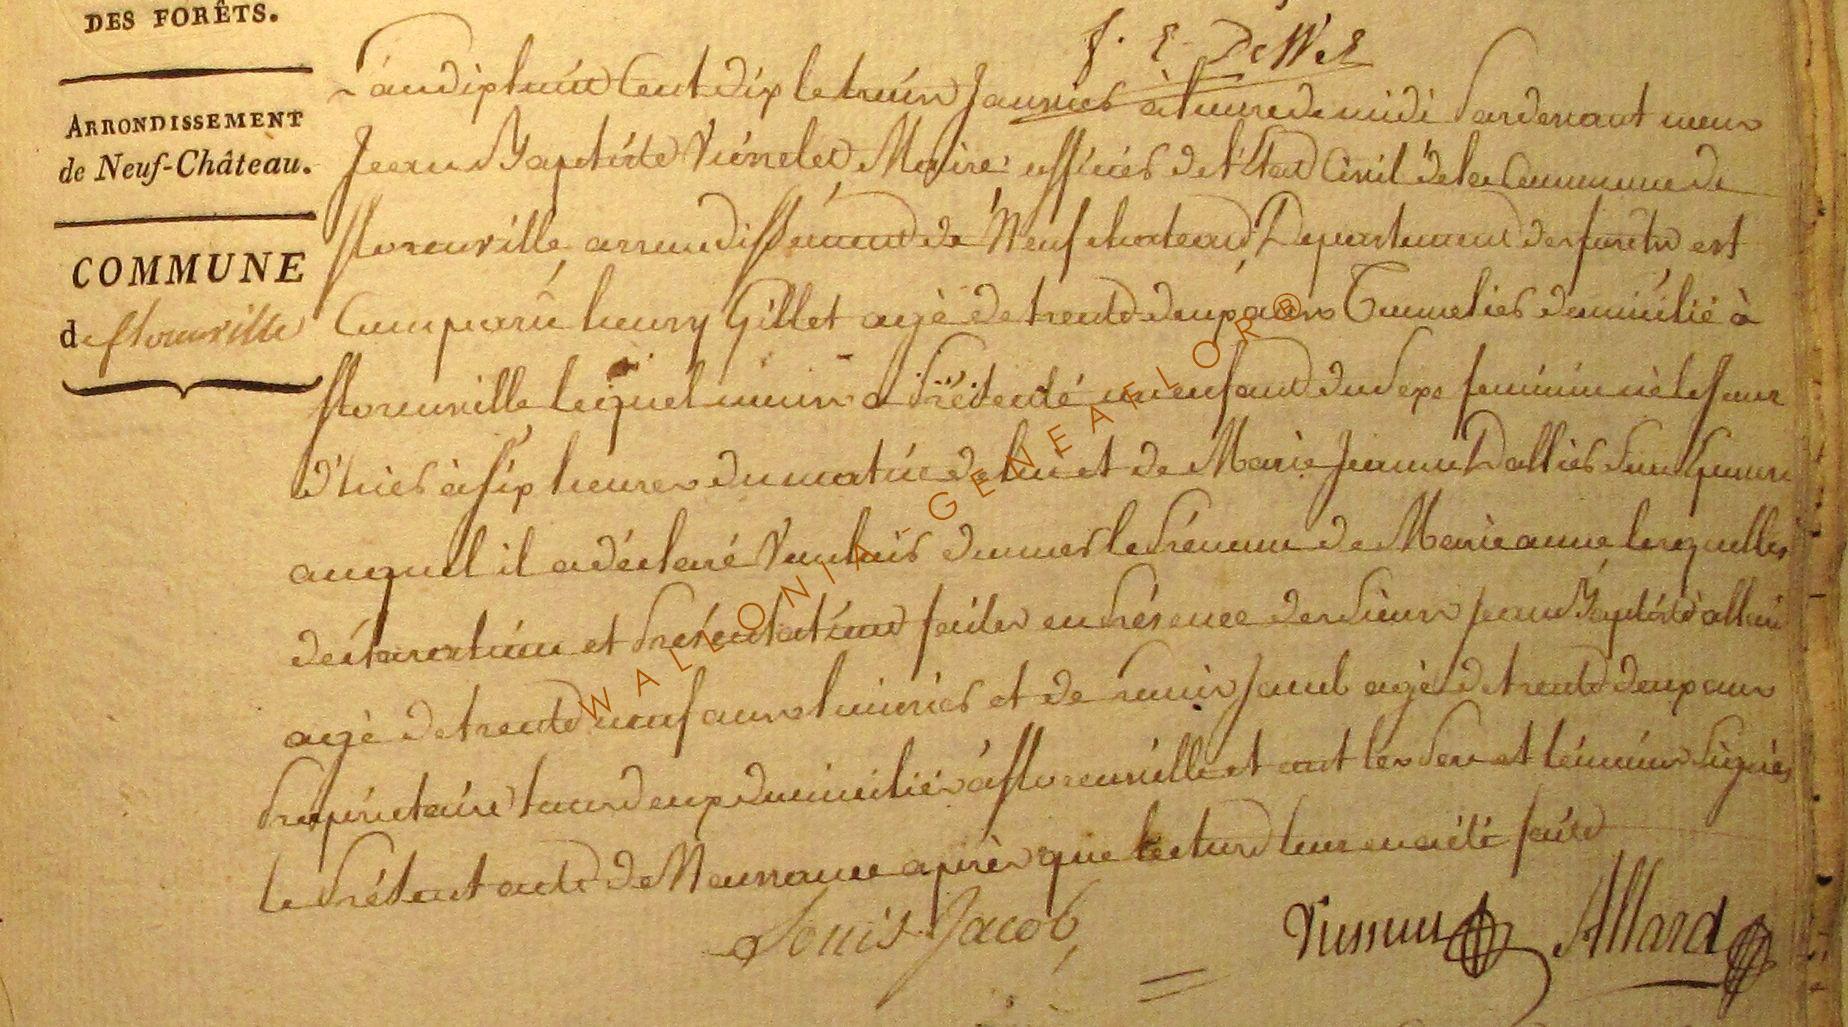 DES FORÊTS.
ARRONDISSEMENT
de Neuf-Château.
COMMUNE
de florenville
f. E. DeWez
L'an dix huit Cent dix le trois Janvier à l'heure de midi Pardevant nous
Jean Baptiste Maire officier de l'Etat Civil de la Commune de
florenville arrondissement de Neufchateau, Departement des forêts est
Comparu henry Gillet agé de trente deux ans Tonnelier domicilié à
florenville lequel nous a Présenté un enfant du Sexe feminin né le Jour
d'hier à six heures du matin de lui et de Marie Jeanne son Epouse
auquel il a déclaré Vouloir donner le Prénom de Marie anne lesquelles
déclaration et Présentation faites en Présence des Sieurs Jean Baptiste allard
agé de trente neuf ans et de Louis Jacob agé de trente deux ans
Propriétaire tous deux domiciliés à florenville et ont les Pere et témoins Signés
le Présent acte de Naissance après que lecture leur en a été faite
Louis Jacob
Allard
WALLONIA-GENEAFLOR®